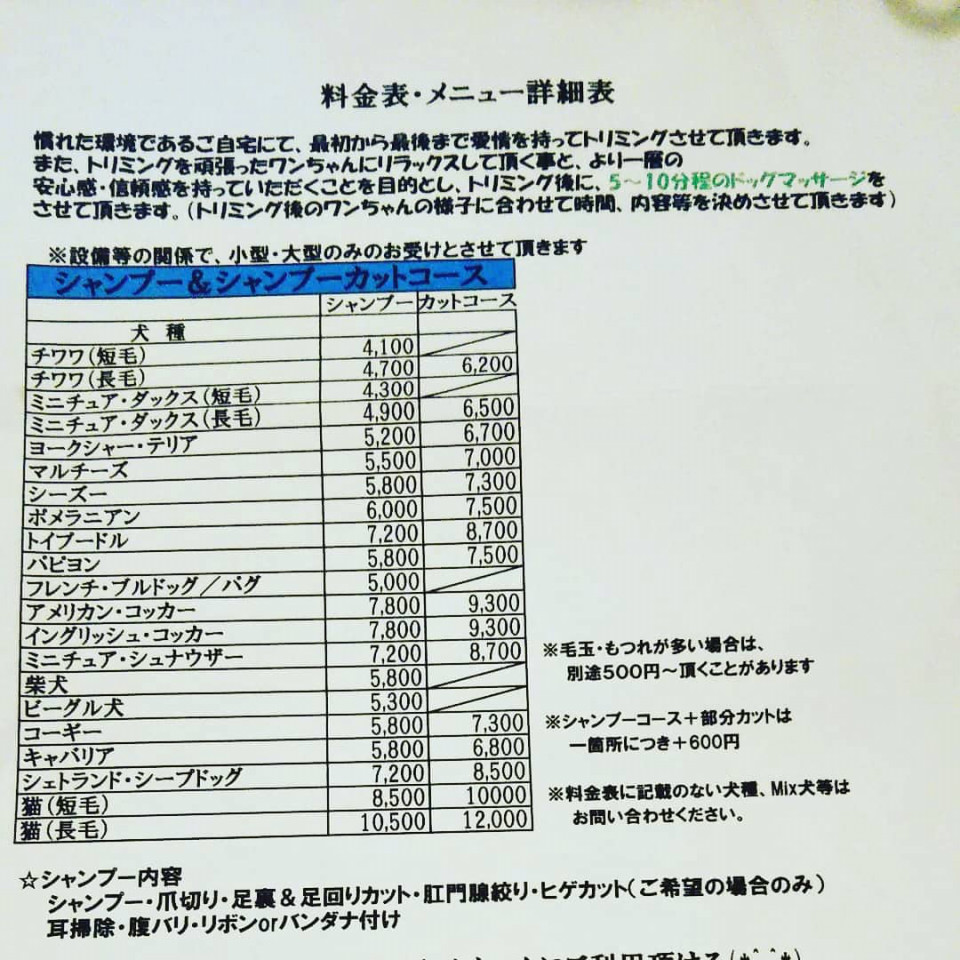 料金表・メニュー詳細表
慣れた環境であるご自宅にて、最初から最後まで愛情を持ってトリミングさせて頂きます。
また、トリミングを頑張ったワンちゃんにリラックスして頂く事と、より一層の
安心感・信頼感を持っていただくことを目的とし、トリミング後に、5～10分程のドッグマッサージを
させて頂きます。(トリミング後のワンちゃんの様子に合わせて時間、内容等を決めさせて頂きます)
※設備等の関係で、小型・大型のみのお受けとさせて頂きます
シャンプー＆シャンプーカットコース
シャンプー カットコース
犬 種
チワワ(短毛) 4,100
チワワ(長毛) 4,700 6,200
ミニチュア・ダックス(短毛) 4,300
ミニチュア・ダックス(長毛) 4,900 6,500
ヨークシャー・テリア 5,200 6,700
マルチーズ 5,500 7,000
シーズー 5,800 7,300
ポメラニアン 6,000 7,500
トイプードル 7,200 8,700
パピヨン 5,800 7,500
フレンチ・ブルドッグ／パグ 5,000
アメリカン・コッカー 7,800 9,300
イングリッシュ・コッカー 7,800 9,300
ミニチュア・シュナウザー 7,200 8,700
柴犬 5,800
ビーグル犬 5,300
コーギー 5,800 7,300
キャバリア 5,800 6,800
シェトランド・シープドッグ 7,200 8,500
猫(短毛) 8,500 10000
猫(長毛) 10,500 12,000
※毛玉・もつれが多い場合は、
別途500円～頂くことがあります
※シャンプーコース＋部分カットは
一箇所につき＋600円
※料金表に記載のない犬種、Mix犬等は
お問い合わせください。
☆シャンプー内容
シャンプー・爪切り・足裏＆足回りカット・肛門腺絞り・ヒゲカット(ご希望の場合のみ)
耳掃除・腹バリ・リボンorバンダナ付け